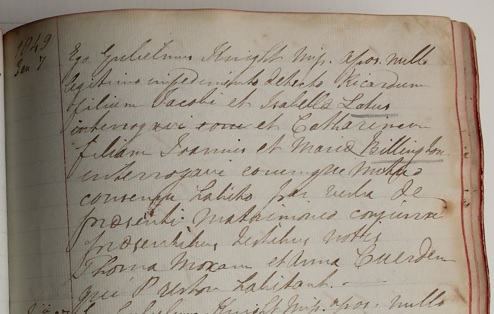 1849
Jan 7
Ego Gulielmus Knight Miss. Apos. nullo
legitimo impedimento detecto Ricardum
filium Jacobi et Isabella Latus
interrogavi et Catharinam
filiam Joannis et Maria Billington
interrogavi eorumque mutuo
consensu habito per verba de
præsenti matrimonio conjunxi
præsentibus testibus notis
Thoma Moxam et Anna Cuerden
qui Preston habitant. -
Gulielmus Knight Miss. Apos. nullo